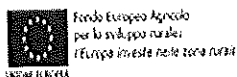 Fondo Europeo Agricolo
per lo sviluppo rurale:
l'Europa investe nelle zone rurali
UNIONE EUROPEA